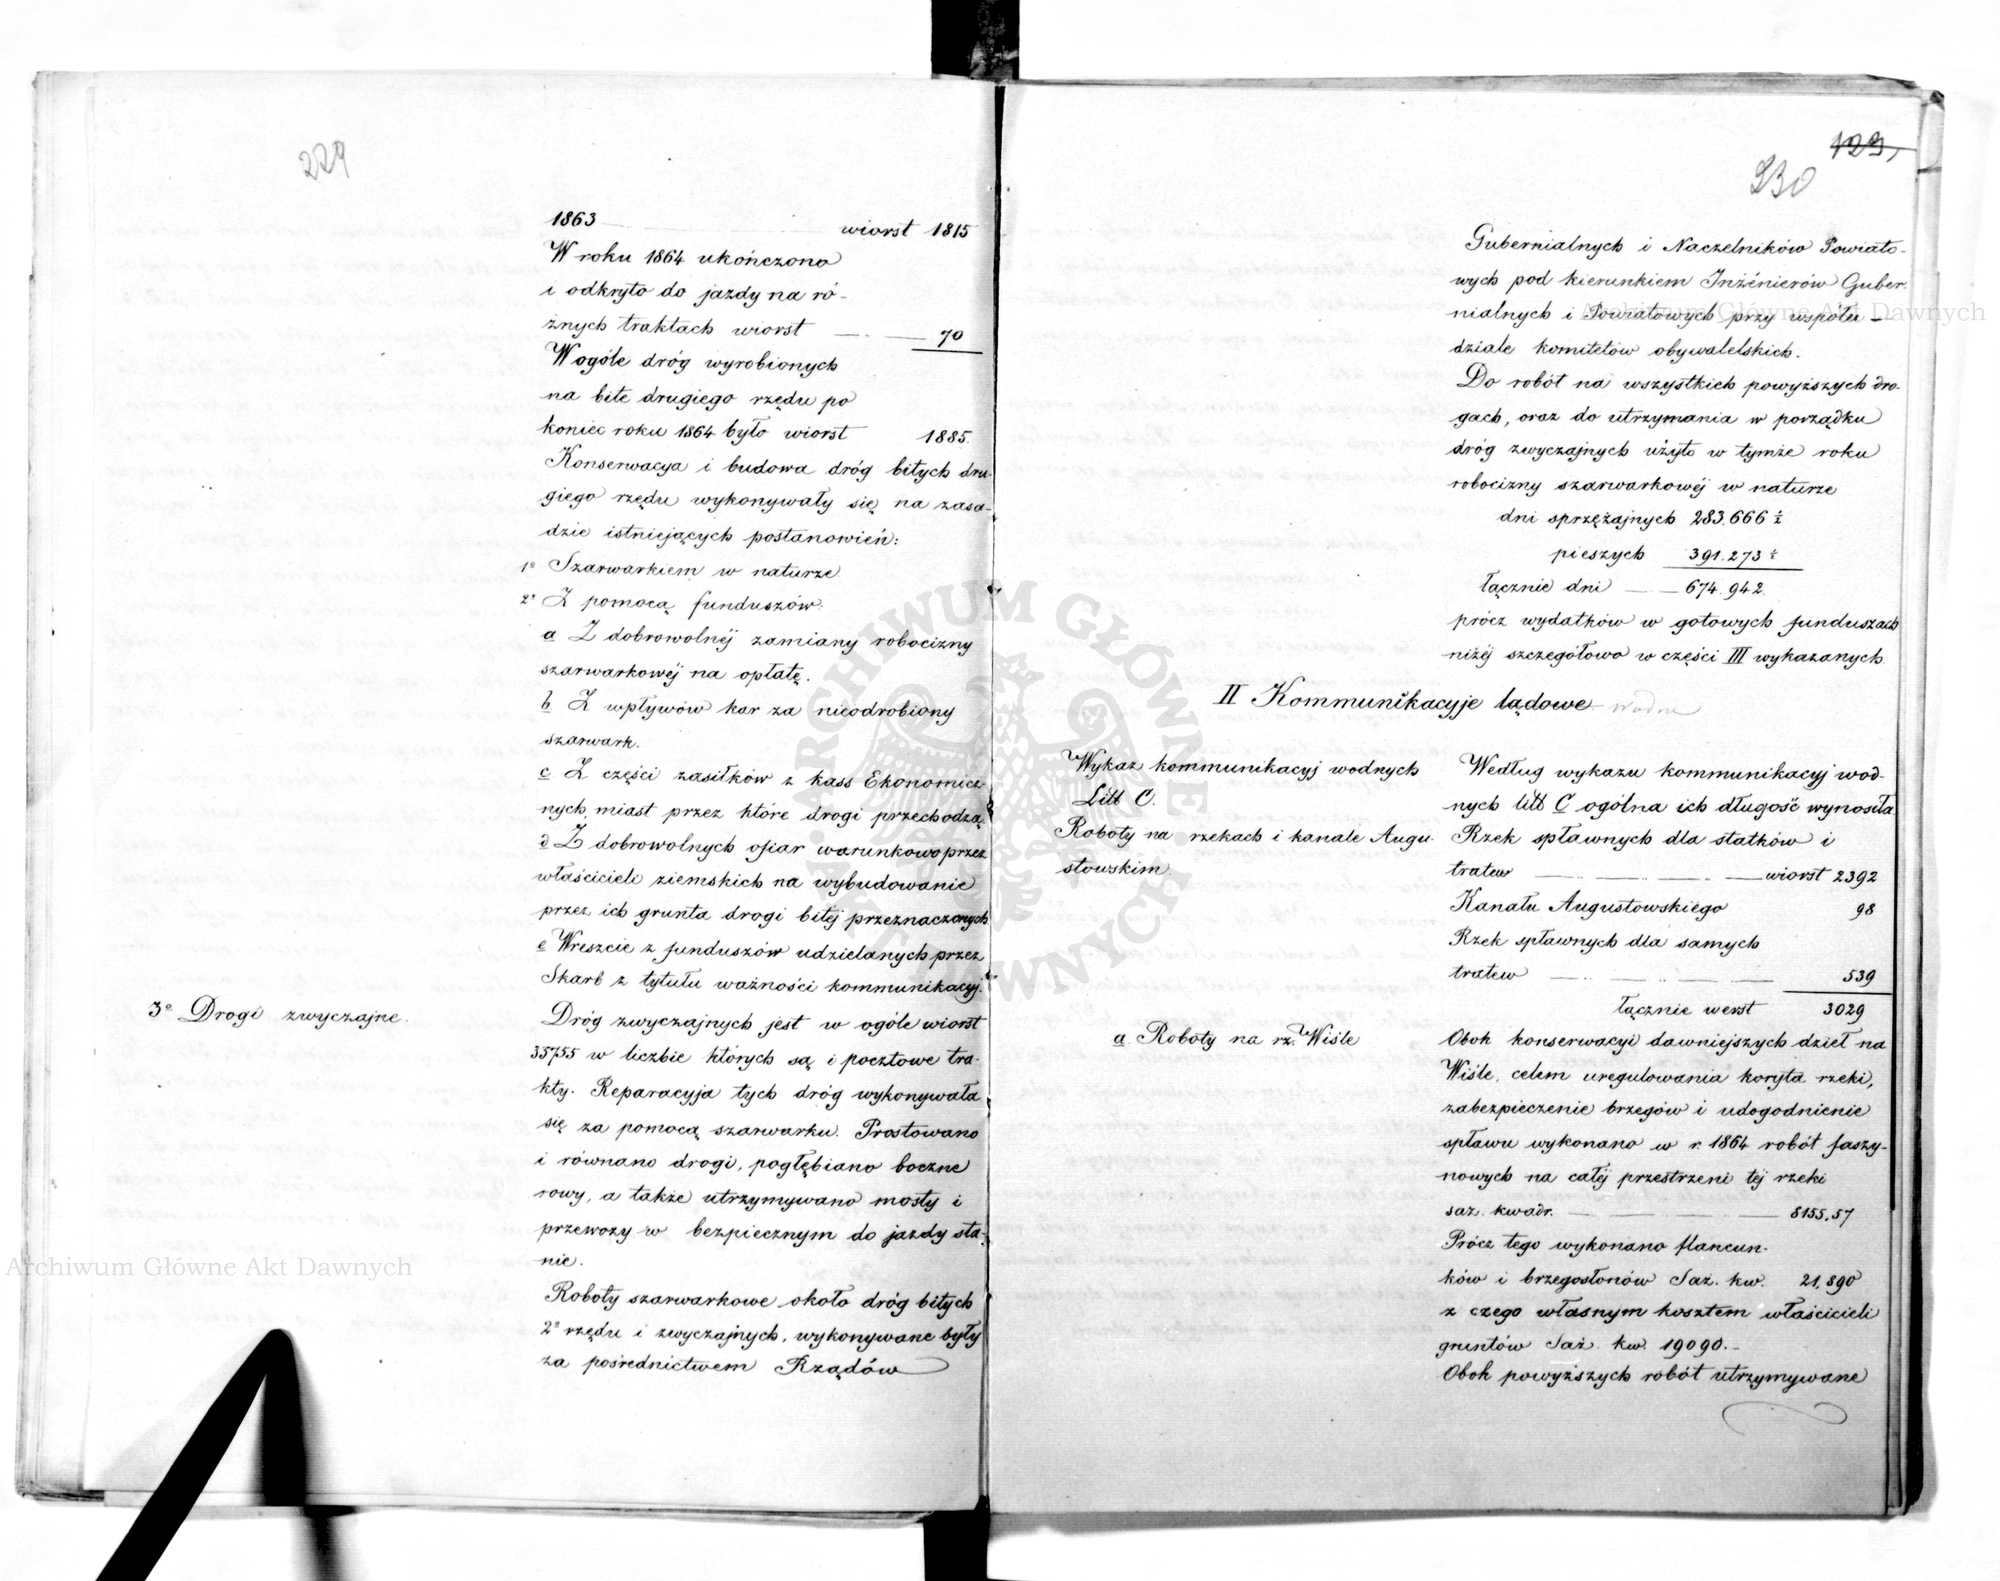 229
1863 wiorst 1815
W roku 1864 ukończono
i odkryto do jazdy na ró-
żnych traktach wiorst 70
W ogóle dróg wyrobionych
na bite drugiego rzędu po
koniec roku 1864 było wiorst 1885.
Konserwacya i budowa dróg bitych dru-
giego rzędu wykonywały się na zasa-
dzie istniejących postanowień:
1º Szarwarkiem w naturze
2º Z pomocą funduszów:
a Z dobrowolnéj zamiany robocizny
szarwarkowéj na opłatę.
b. Z wpływów kar za nieodrobiony
szarwark.
c Z części zasiłków z kass Ekonomicz-
nych miast przez które drogi przechodzą.
d Z dobrowolnych ofiar warunkowo przez
właścicieli ziemskich na wybudowanie
przez ich grunta drogi bitéj przeznaczonych
e Wreszcie z funduszów udzielanych przez
Skarb z tytułu ważności kommunikacyj.
3º Drogi zwyczajne.
Dróg zwyczajnych jest w ogóle wiorst
35755 w liczbie których są i pocztowe tra-
kty. Reparacyja tych dróg wykonywała
się za pomocą szarwarku. Prostowano
i równano drogi, pogłębiano boczne
rowy, a także utrzymywano mosty i
przewozy w bezpiecznym do jazdy sta-
nie.
Roboty szarwarkowe około dróg bitych
2º rzędu i zwyczajnych, wykonywane były
za pośrednictwem Rządów
129,
230
Gubernialnych i Naczelników Powiato-
wych pod kierunkiem Inżénierów Guber-
nialnych i Powiatowych przy współu-
dziale komitetów obywatelskich.
Do robót na wszystkich powyższych dro-
gach, oraz do utrzymania w porządku
dróg zwyczajnych użyto w tymże roku
robocizny szarwarkowéj w naturze
dni sprzężajnych 283.666 ½
pieszych 391.273
łącznie dni 674.942.
prócz wydatków w gotowych funduszach
niżéj szczegółowo w części III wykazanych.
II Kommunikacyje lądowe wodne
Wykaz kommunikacyj wodnych
Litt C.
Roboty na rzekach i kanale Augu-
stowskim.
Według wykazu kommunikacyj wod-
nych litt C ogólna ich długość wynosiła
Rzek spławnych dla statków i
tratew wiorst 2392
Kanału Augustowskiego 98
Rzek spławnych dla samych
tratew 539
łącznie werst 3029
a. Roboty na rz. Wiśle
Obok konserwacyi dawniejszych dzieł na
Wiśle, celem uregulowania koryta rzeki,
zabezpieczenie brzegów i udogodnienie
spławu wykonano w r. 1864 robót faszy-
nowych na całéj przestrzeni téj rzeki
saż. kwadr. 8155,57
Prócz tego wykonano flancun-
ków i brzegosłonów Saż. kw. 21,890
z czego własnym kosztem właścicieli
gruntów Saż. kw. 19090.
Obok powyższych robót utrzymywane
Archiwum Główne Akt Dawnych
Archiwum Główne Akt Dawnych
ARCHIWUM GŁÓWNE AKT DAWNYCH